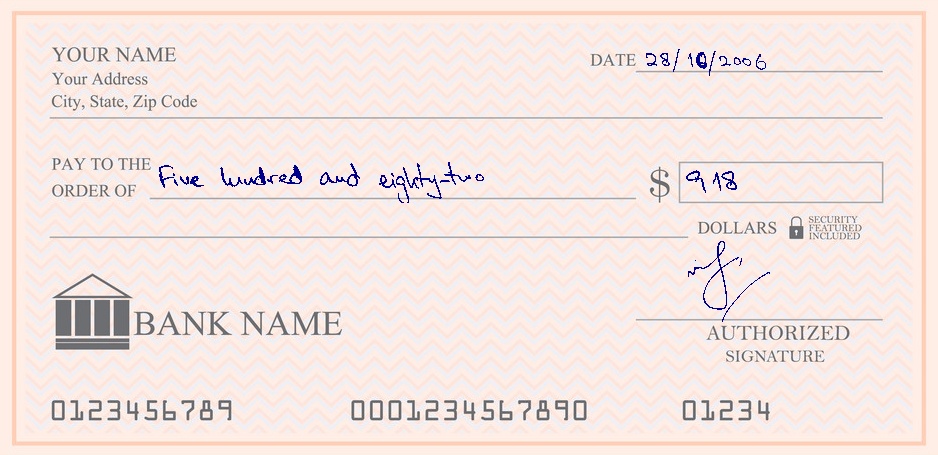 YOUR NAME
Your Address
City, State, Zip Code
DATE 28/10/2006
PAY TO THE
ORDER OF Five hundred and eighty-two $ 918
DOLLARS SECURITY
FEATURED
INCLUDED
BANK NAME
AUTHORIZED
SIGNATURE
0123456789 0001234567890 01234